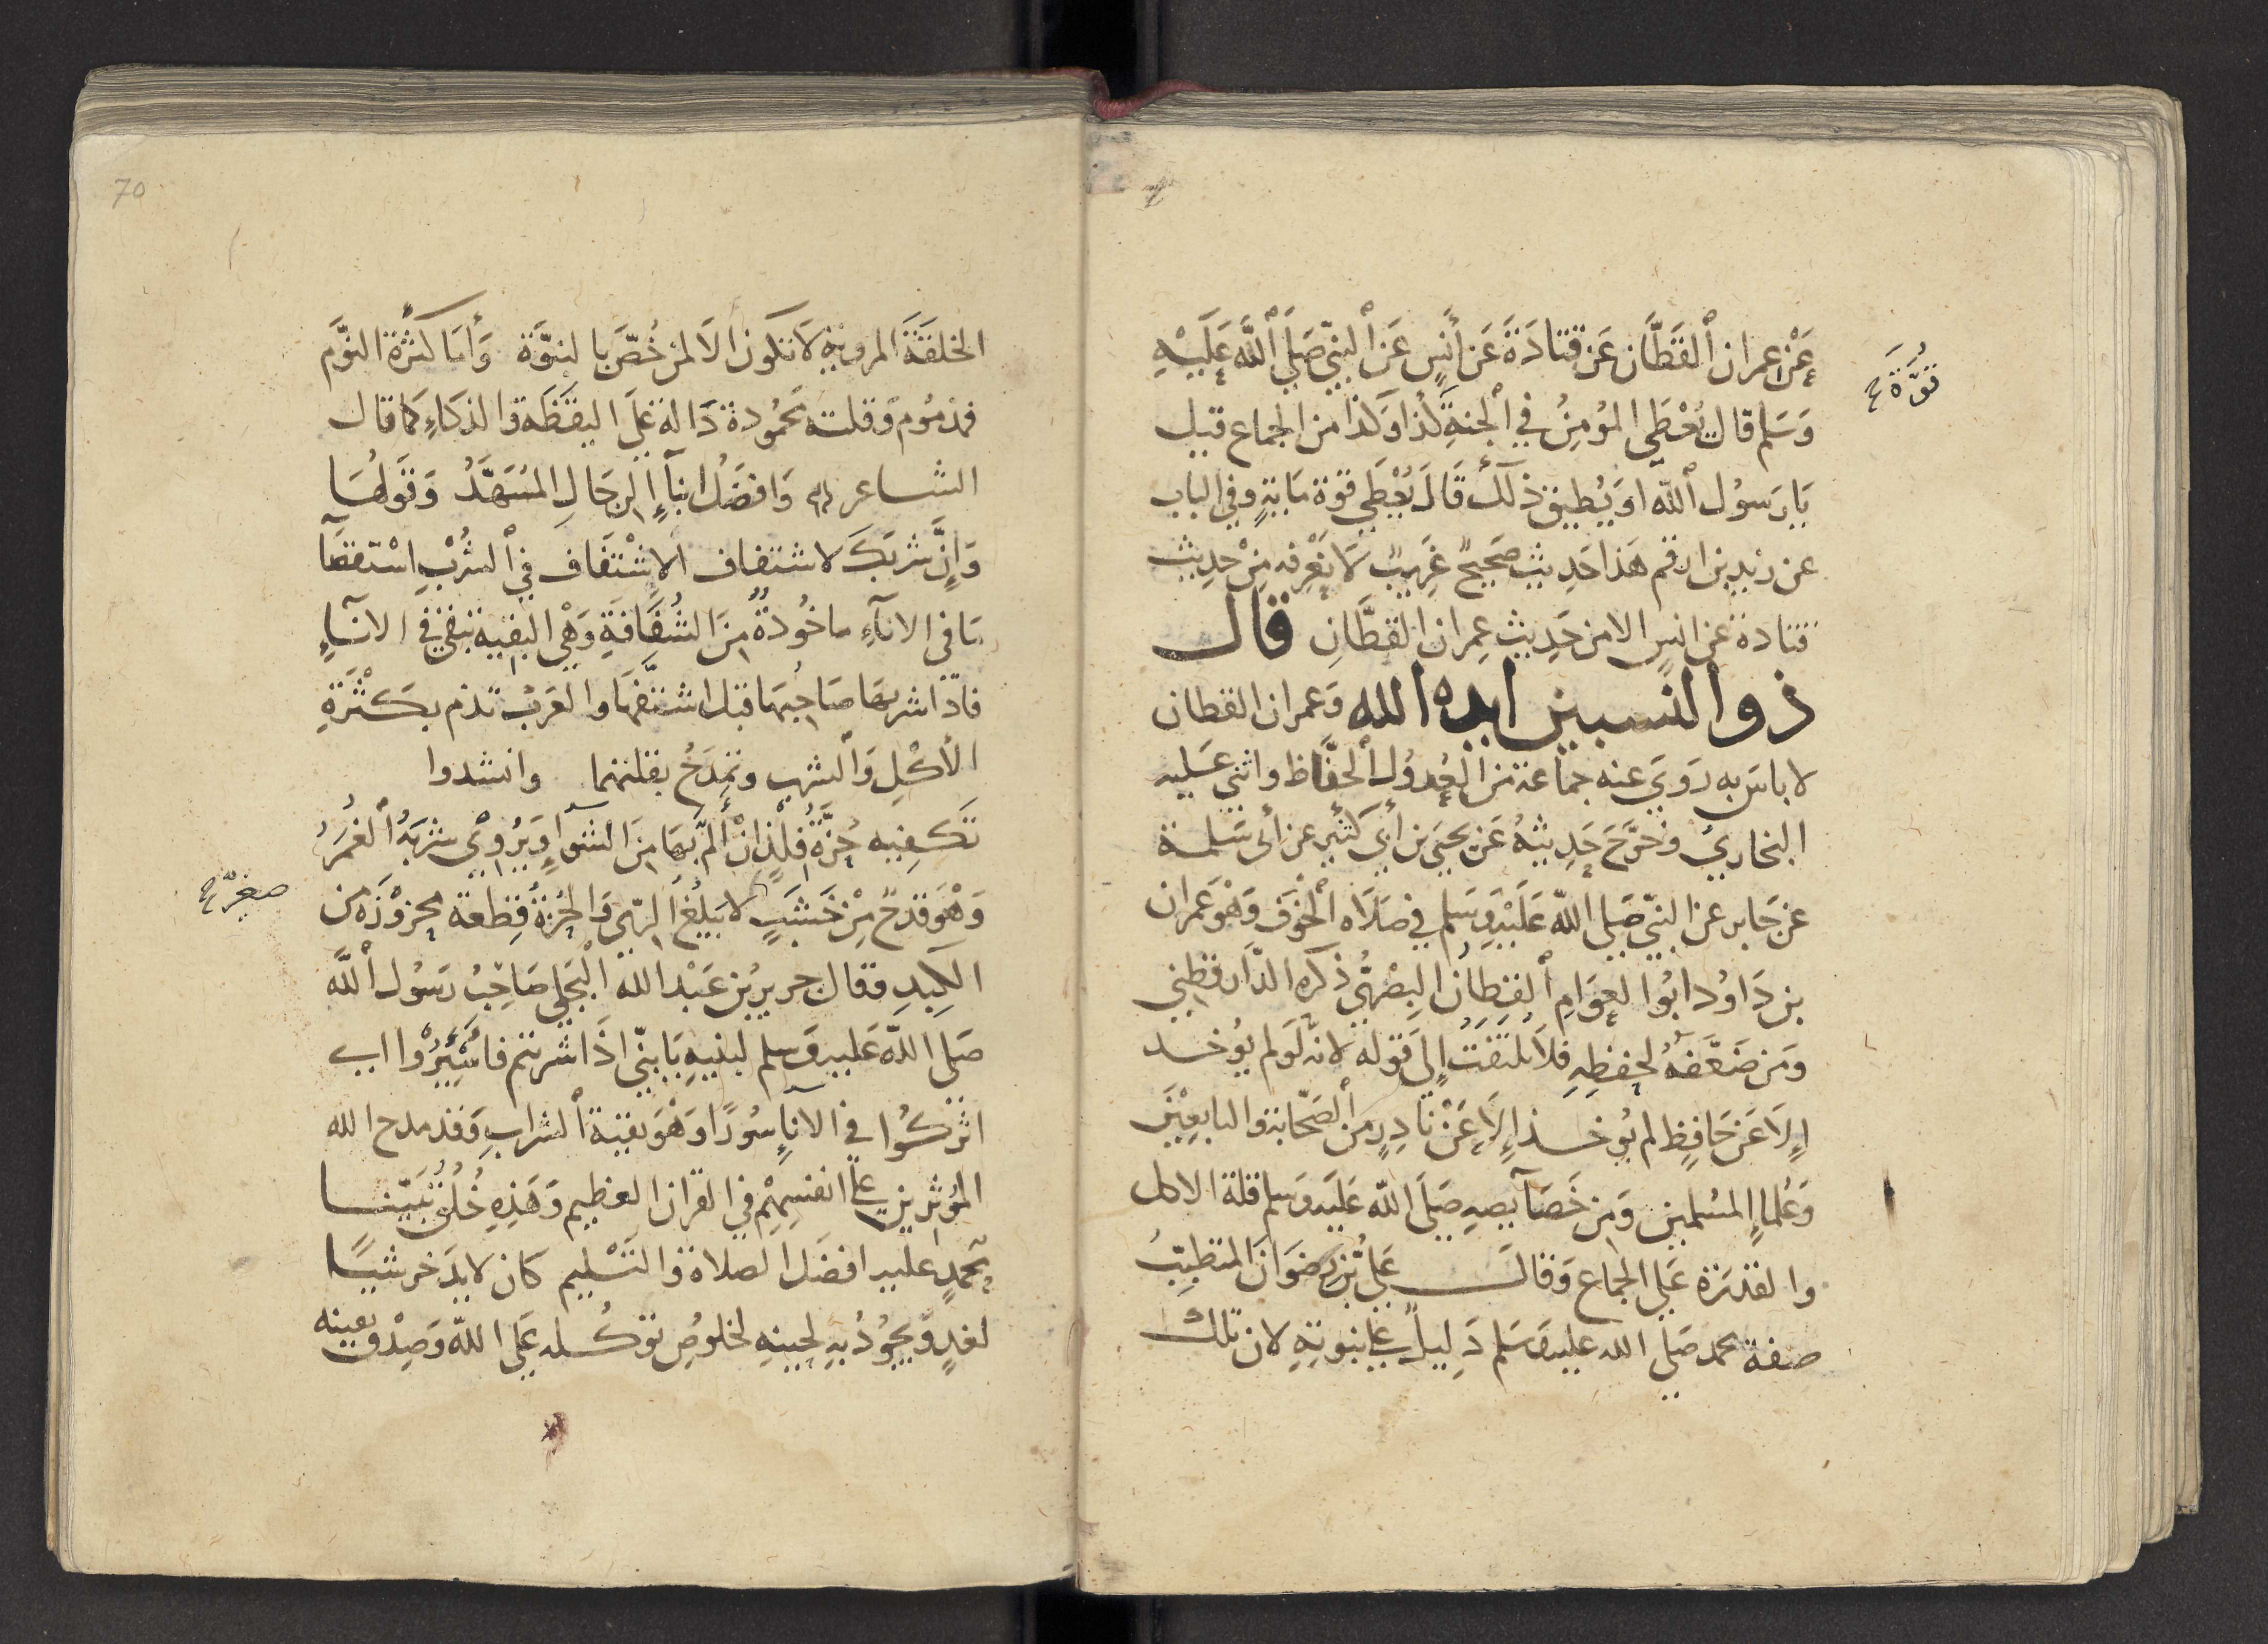 عَنْ عمران ٱلقَطَّان عَن قتادَةَ عَن أَنَسٍ عَن ٱلنبيّ صَلى ٱللَّه عَلَيْهِ
قُوَّةَ
وَسَلم قال يُعْطَى المُؤمِنُ في ٱلجنةِ كذا وَكذا من الجماع قيل
يَا رَسُول ٱللّه اوَ يُطيق ذلكَ قَالَ يُعْطَى قوة مَايةٍ وفي الباب
عن زيد بن ارقم هَذا حَديث صَحيحٌ غَريبٌ لا نَعْرفه مِنْ حديث
قتادة عن انسٍ الا من حَديث عِمران القطَّانِ قال
ذو النسبين ايده الله وَعمران القطان
لا باسَ به رَوَى عنه جماعة من العُدوُل ٱلحفَّاظ واثنى عَليه
البخاريّ وخرَّجَ حَديثهُ عَن يحيى بن أبي كثيرٍ عن أبى سَلمة
عن جَابر عن النبيّ صَلى اللّه عَلَيْه وَسَلم في صَلاة ٱلخَوف وَهْوَ عِمران
بن دَاوُد ابُوا العوَام ٱلقطان البصْريُّ ذكره الدَّارقطني
وَمن ضَعَّفهُ لحفظِهِ فلا يُلتفَتُ إلى قوله لانه لَو لم يُوخـذ
إلا عَن حَافِظٍ لم يُوخـذ إلا عَنْ نادِرٍ من ٱلصَّحابة والتابعِيْنَ
وَعُلماءِ المسُلمين وَمن خَصَآيصِهِ صَلى اللّه عَليه وَسلم قلة الاكل
والقدرَة عَلى الجماع وَقالَ عَلىُّ بْن رضوَان المتطبِّبُ
صفة محمد صَلى الله عليه وَسَلم دَليلٌ على نبوتهِ لان تلك
70
الخلقَةَ المرويَّة لا تكون الا لمن خُصَّ بالنبوَّة وَأمَا كثْرة النوَّم
فمذمُوم وَقلته محمُودة دَالة عَلى اليقَظَة والذكاءِ كما قال
الشاعر وَافضَلُ ابنآءِ الرجَالِ المُسَهَّدُ وَقَولُهَا
وَإنَّ شربَكَ لاشتفاف الاشْتفَاف في ٱلشُرْبِ اسْتقصَآ
مَا في الانآءِ ماخُوذةٌ مِنَ الشُفَافَةِ وَهْيَ البقية تبقى في الانآءِ
فاذا شربهَا صَاحِبُهَا قيل اشتفَّهَا والعَربُ تذم بكَثْرَةِ
الأكْلِ وَٱلشرب وتمْدَحُ بقلتهما وانشدوا
تَكفيه حُزَّةُ فِلْذانْ أَلَمَّ بهَا مِنَ الشوَآءِ وَيُروِيْ شرْبَهُ ٱلغُمَرُ
وَهْوَ قدَحٌ مِنْ خَشَبٍ لا يَبلُغُ الرّي وَالحُزَةُ قِطعة محزوْزَة من
صغير
الكبِدِ وقال جريرُ بْن عَبْد الله ٱلبَجَلي صَاحِبُ رَسُول ٱللَّه
صَلى اللّه عَليه وَسلم لبنيهِ يَا بنيّ اذا شربتم فاسْئِرُوْا اى
اتركُوا في الانآءِ سُورًا وَهْوَ بقية ٱلشرابِ وَقد مدح الله
المؤثرين على انفسِهِمْ في القران العظيم وَهَذِهِ خُلُقُ نَبيّنا
محمدٍ عليه افضَل الصلاة والتَسْليم كان لا يدَخر شيًا
لغدٍ وَيجوُدُ بهِ لحينهِ لخلوُصِ توَكُّله عَلى اللّه وَصِدْق يَقينه